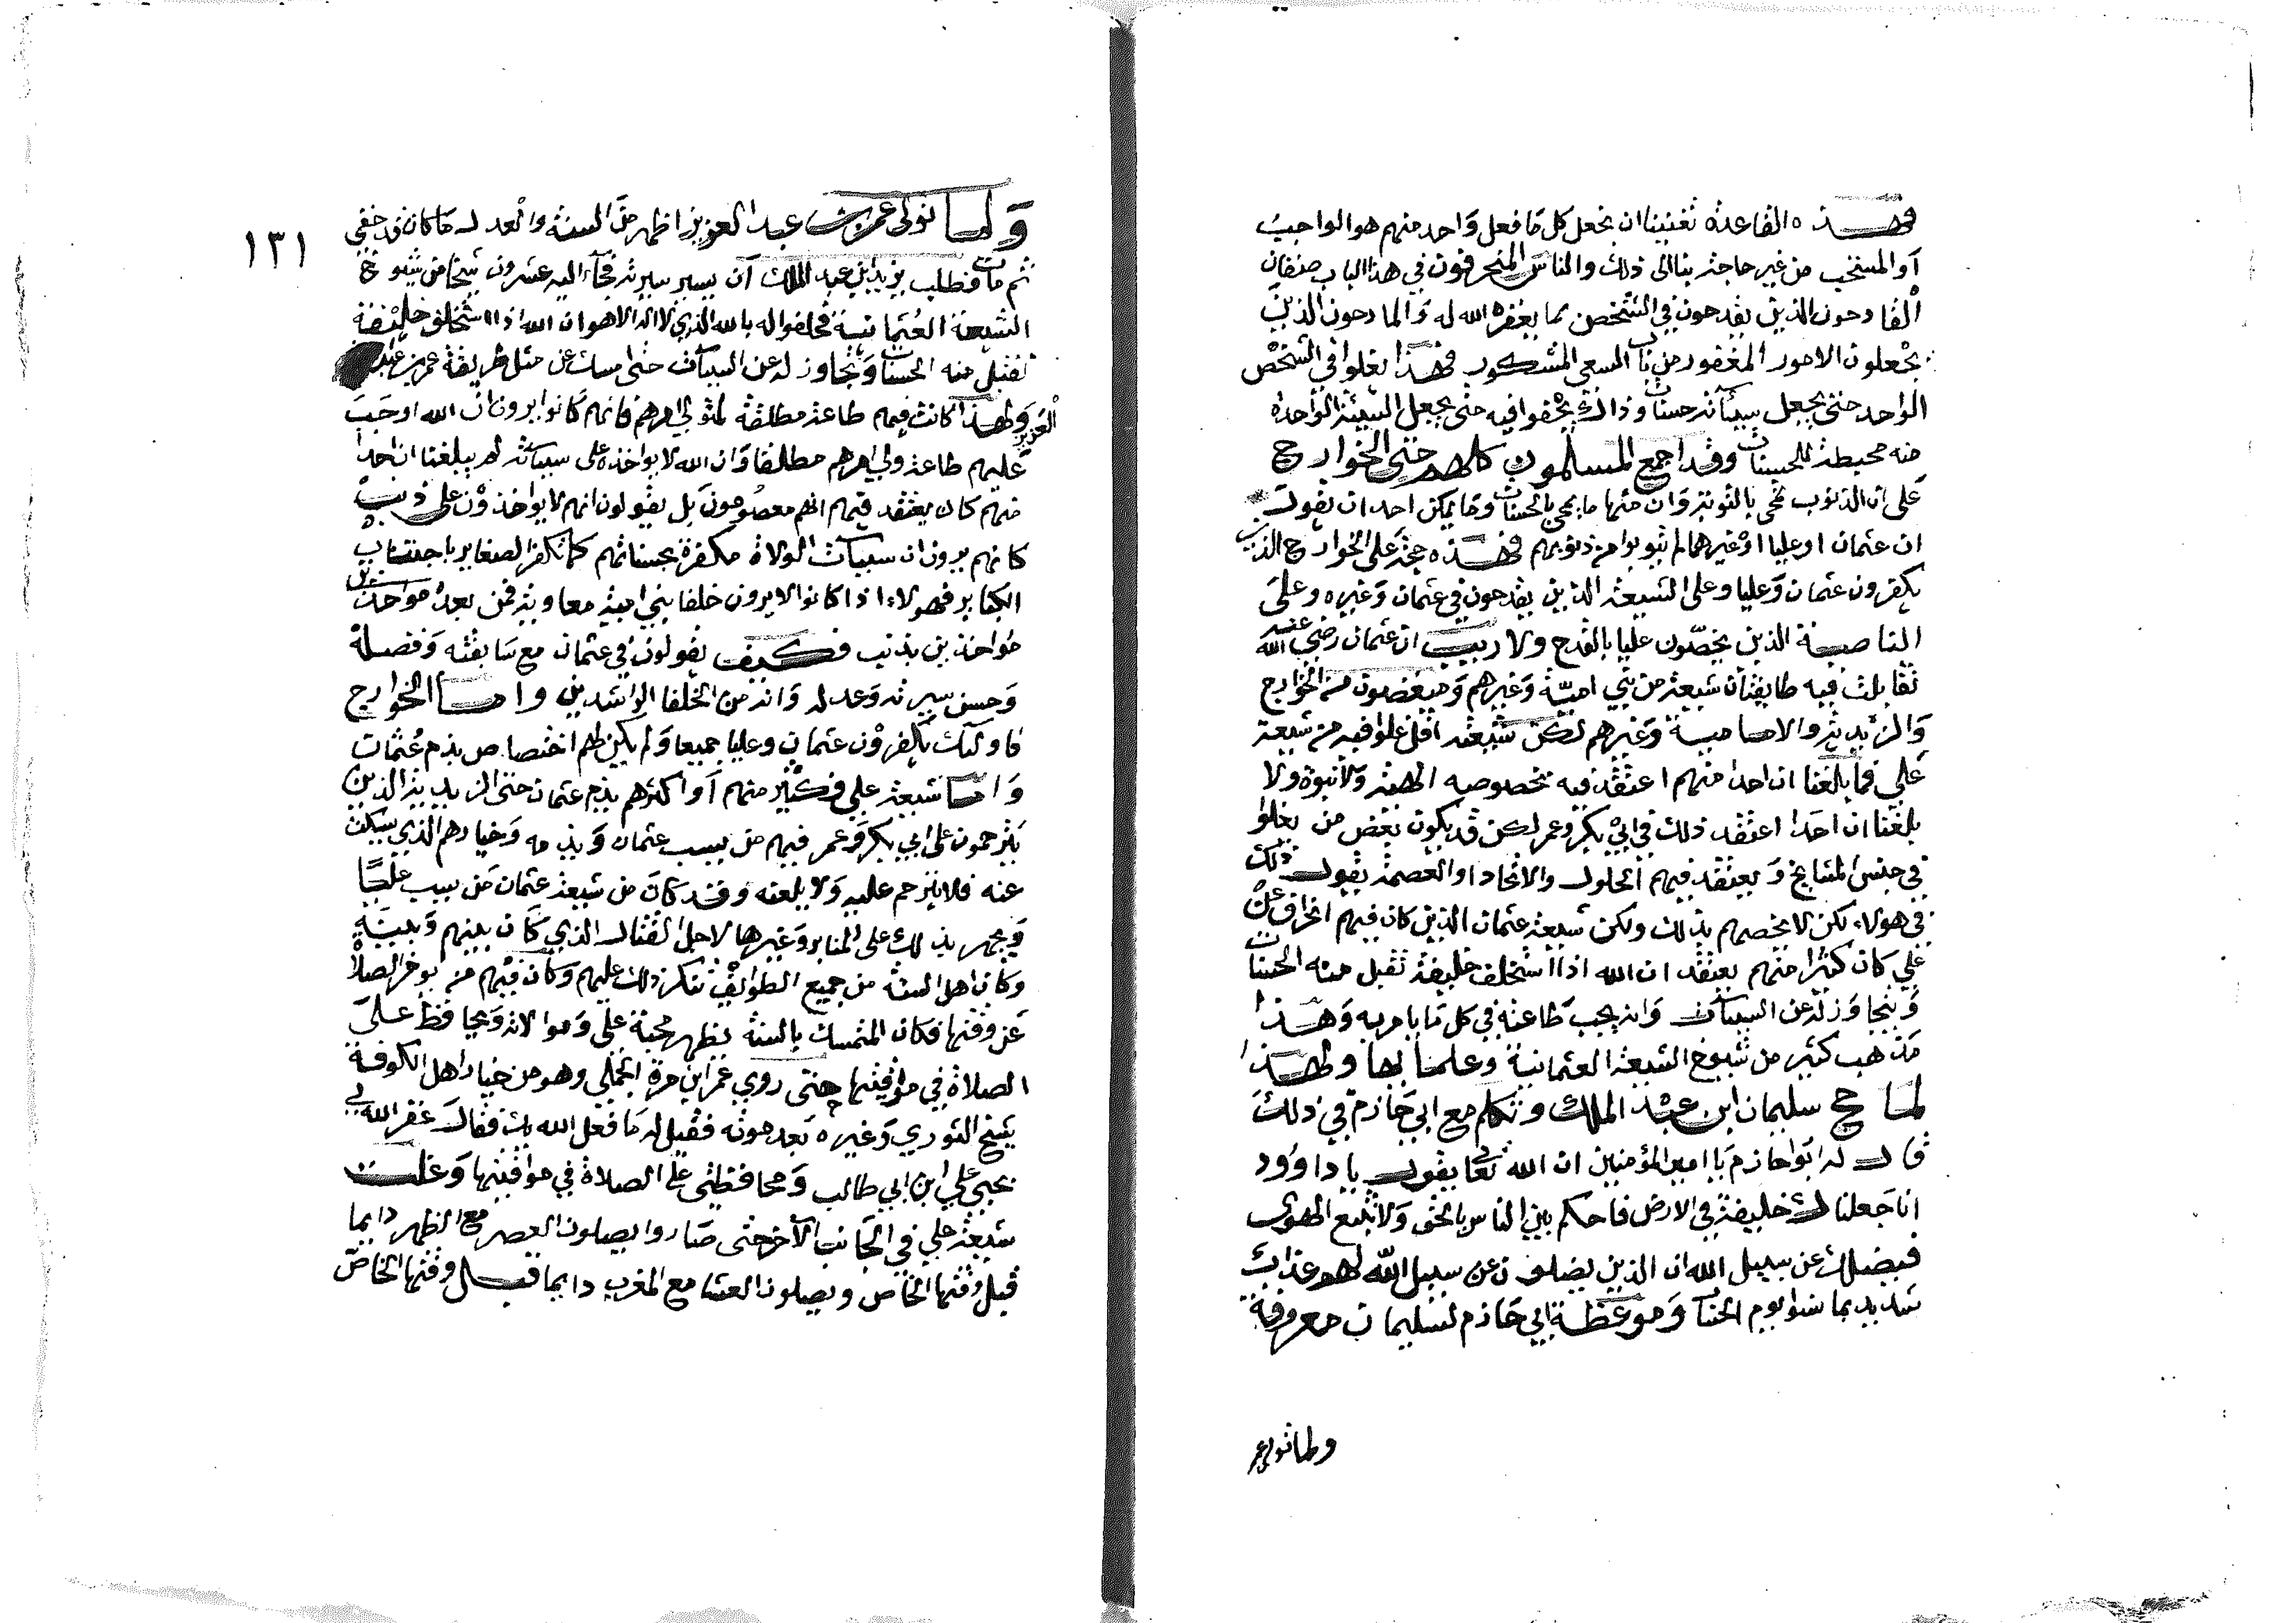 فهذه القاعدة تغنينا ان نجعل كل ما فعل واحد منهم هو الواجب
او المستحب من غير حاجة بنا الى ذلك والناس المنحرفون في هذا الباب صنفان
القادحون الذين يقدحون في الشخص بما يغفره الله له والمادحون الذين
يجعلون الامور المغفورة من باب السعي المشكور فهذا يغلوا في الشخص
الواحد حتى يجعل سيئاته حسنات وذاك يجفوا فيه حتى يجعل السيئة الواحدة
منه محبطة للحسنات وقد اجمع المسلمون كلهم حتى الخوارج
على ان الذنوب تمحى بالتوبة وان منها ما يمحى بالحسنات وما يمكن احد ان يقول
ان عثمان او عليا او غيرهما لم يتوبوا من ذنوبهم فهذه حجة على الخوارج الذين
يكفرون عثمان وعليا وعلى الشيعة الذين يقدحون في عثمان وغيره وعلى
الناصبة الذين يخصون عليا بالقدح ولا ريب ان عثمان رضي الله عنه
تقابلت فيه طائفتان شيعته من بني امية وغيرهم ومبغضوه من الخوارج
والزيدية والامامية وغيرهم لكن شيعته اقل غلوا فيه من شيعة
علي فما بلغنا ان احدا منهم اعتقد فيه بخصوصه الهية ولا نبوة ولا
بلغنا ان احدا اعتقد ذلك في ابي بكر وعمر لكن قد يكون بعض من يغلوا
في جنس المشايخ ويعتقد فيهم الحلول والاتحاد او العصمة يقول ذلك
في هولاء لكن لا يخصهم بذلك ولكن شيعة عثمان الذين كان فيهم انحراف عن
علي كان كثيرا منهم يعتقد ان الله اذا استخلف خليفة تقبل منه الحسنات
ويتجاوز له عن السيئات وانه يجب طاعته في كل ما يامر به وهذا
مذهب كثير من شيوخ الشيعة العثمانية وعلمايها ولهذا
لما حج سليمان ابن عبد الملك وتكلم مع ابي حازم في ذلك
قال له ابو حازم يا امير المؤمنين ان الله تعالى يقول يا داوود
انا جعلناك خليفة في الارض فاحكم بين الناس بالحق ولا تتبع الهوى
فيضلك عن سبيل الله ان الذين يضلون عن سبيل الله لهم عذاب
شديد بما نسوا يوم الحساب وموعظة ابي حازم لسليمان معروفة
ولما تولى عمر
١٣١
ولما تولى عمر بن عبد العزيز اظهر من السنة والعدل ما كان قد خفي
ثم مات فطلب يزيد ابن عبد الملك ان يسير سيرته فجاء اليه عشرون شيخا من شيوخ
الشيعة العثمانية فحلفوا له بالله الذي لا اله الا هو ان الله اذا استخلف خليفة
تقبل منه الحسنات وتجاوز له عن السيئات حتى امسك عن مثل طريقة عمر بن عبد
العزيز ولهذا كانت فيهم طاعة مطلقة لمتولي امرهم فانهم كانوا يرون ان الله اوجب
عليهم طاعة ولي امرهم مطلقا وان الله لا يواخذه على سيئاته لم يبلغنا ان احدا
منهم كان يعتقد فيهم انهم معصومون بل يقولون انهم لا يواخذون على ذنب
كانهم يرون ان سيئات الولاة مكفرة بحسناتهم كما تكفر الصغاير باجتناب
الكباير فهولاء اذا كانوا لا يرون خلفا بني امية معاوية فمن بعده مواخذين
مواخذين بذنب فكيف يقولون في عثمان مع سابقته وفضله
وحسن سيرته وعدله وانه من الخلفا الراشدين واما الخوارج
فاولئك يكفرون عثمان وعليا جميعا ولم يكن لهم اختصاص بذم عثمان
واما شيعة علي فكثير منهم او اكثرهم يذم عثمان حتى الزيدية الذين
يترحمون على ابي بكر وعمر فيهم من يسب عثمان ويذمه وخيارهم الذي يسكت
عنه فلا يترحم عليه ولا يلعنه وقد كان من شيعة عثمان من يسب عليا
ويجهر بذلك على المنابر وغيرها لاجل القتال الذي كان بينهم وبينه
وكان اهل السنة من جميع الطوائف تنكر ذلك عليهم وكان فيهم من يوخر الصلاة
عن وقتها فكان المتمسك بالسنة يظهر محبة علي وموالاته ويحافظ على
الصلاة في مواقيتها حتى روي عمر ابن مرة الجملي وهو من خيار اهل الكوفة
شيخ الثوري وغيره بعد موته فقيل له ما فعل الله بك فقال غفر الله لي
بحبي علي ابن ابي طالب ومحافظتي على الصلاة في مواقيتها وغلت
شيعة علي في الجانب الآخر حتى صاروا يصلون العصر مع الظهر دايما
قبل وقتها الخاص ويصلون العشا مع المغرب دايما قبل وقتها الخاص